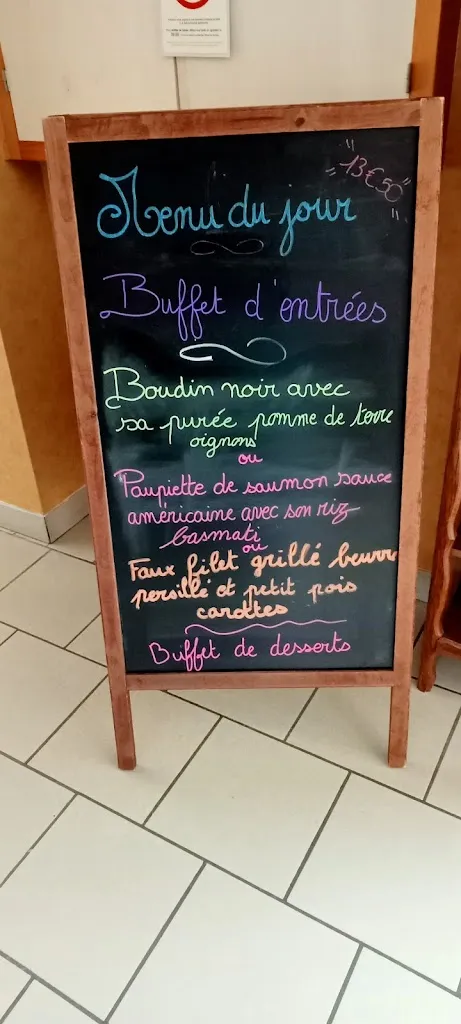 "13€50"
Menu du jour
Buffet d'entrées
Boudin noir avec
sa purée pomme de terre
oignons
ou
Paupiette de saumon sauce
américaine avec son riz
basmati
ou
Faux filet grillé beurre
persillé et petit pois
carottes
Buffet de desserts